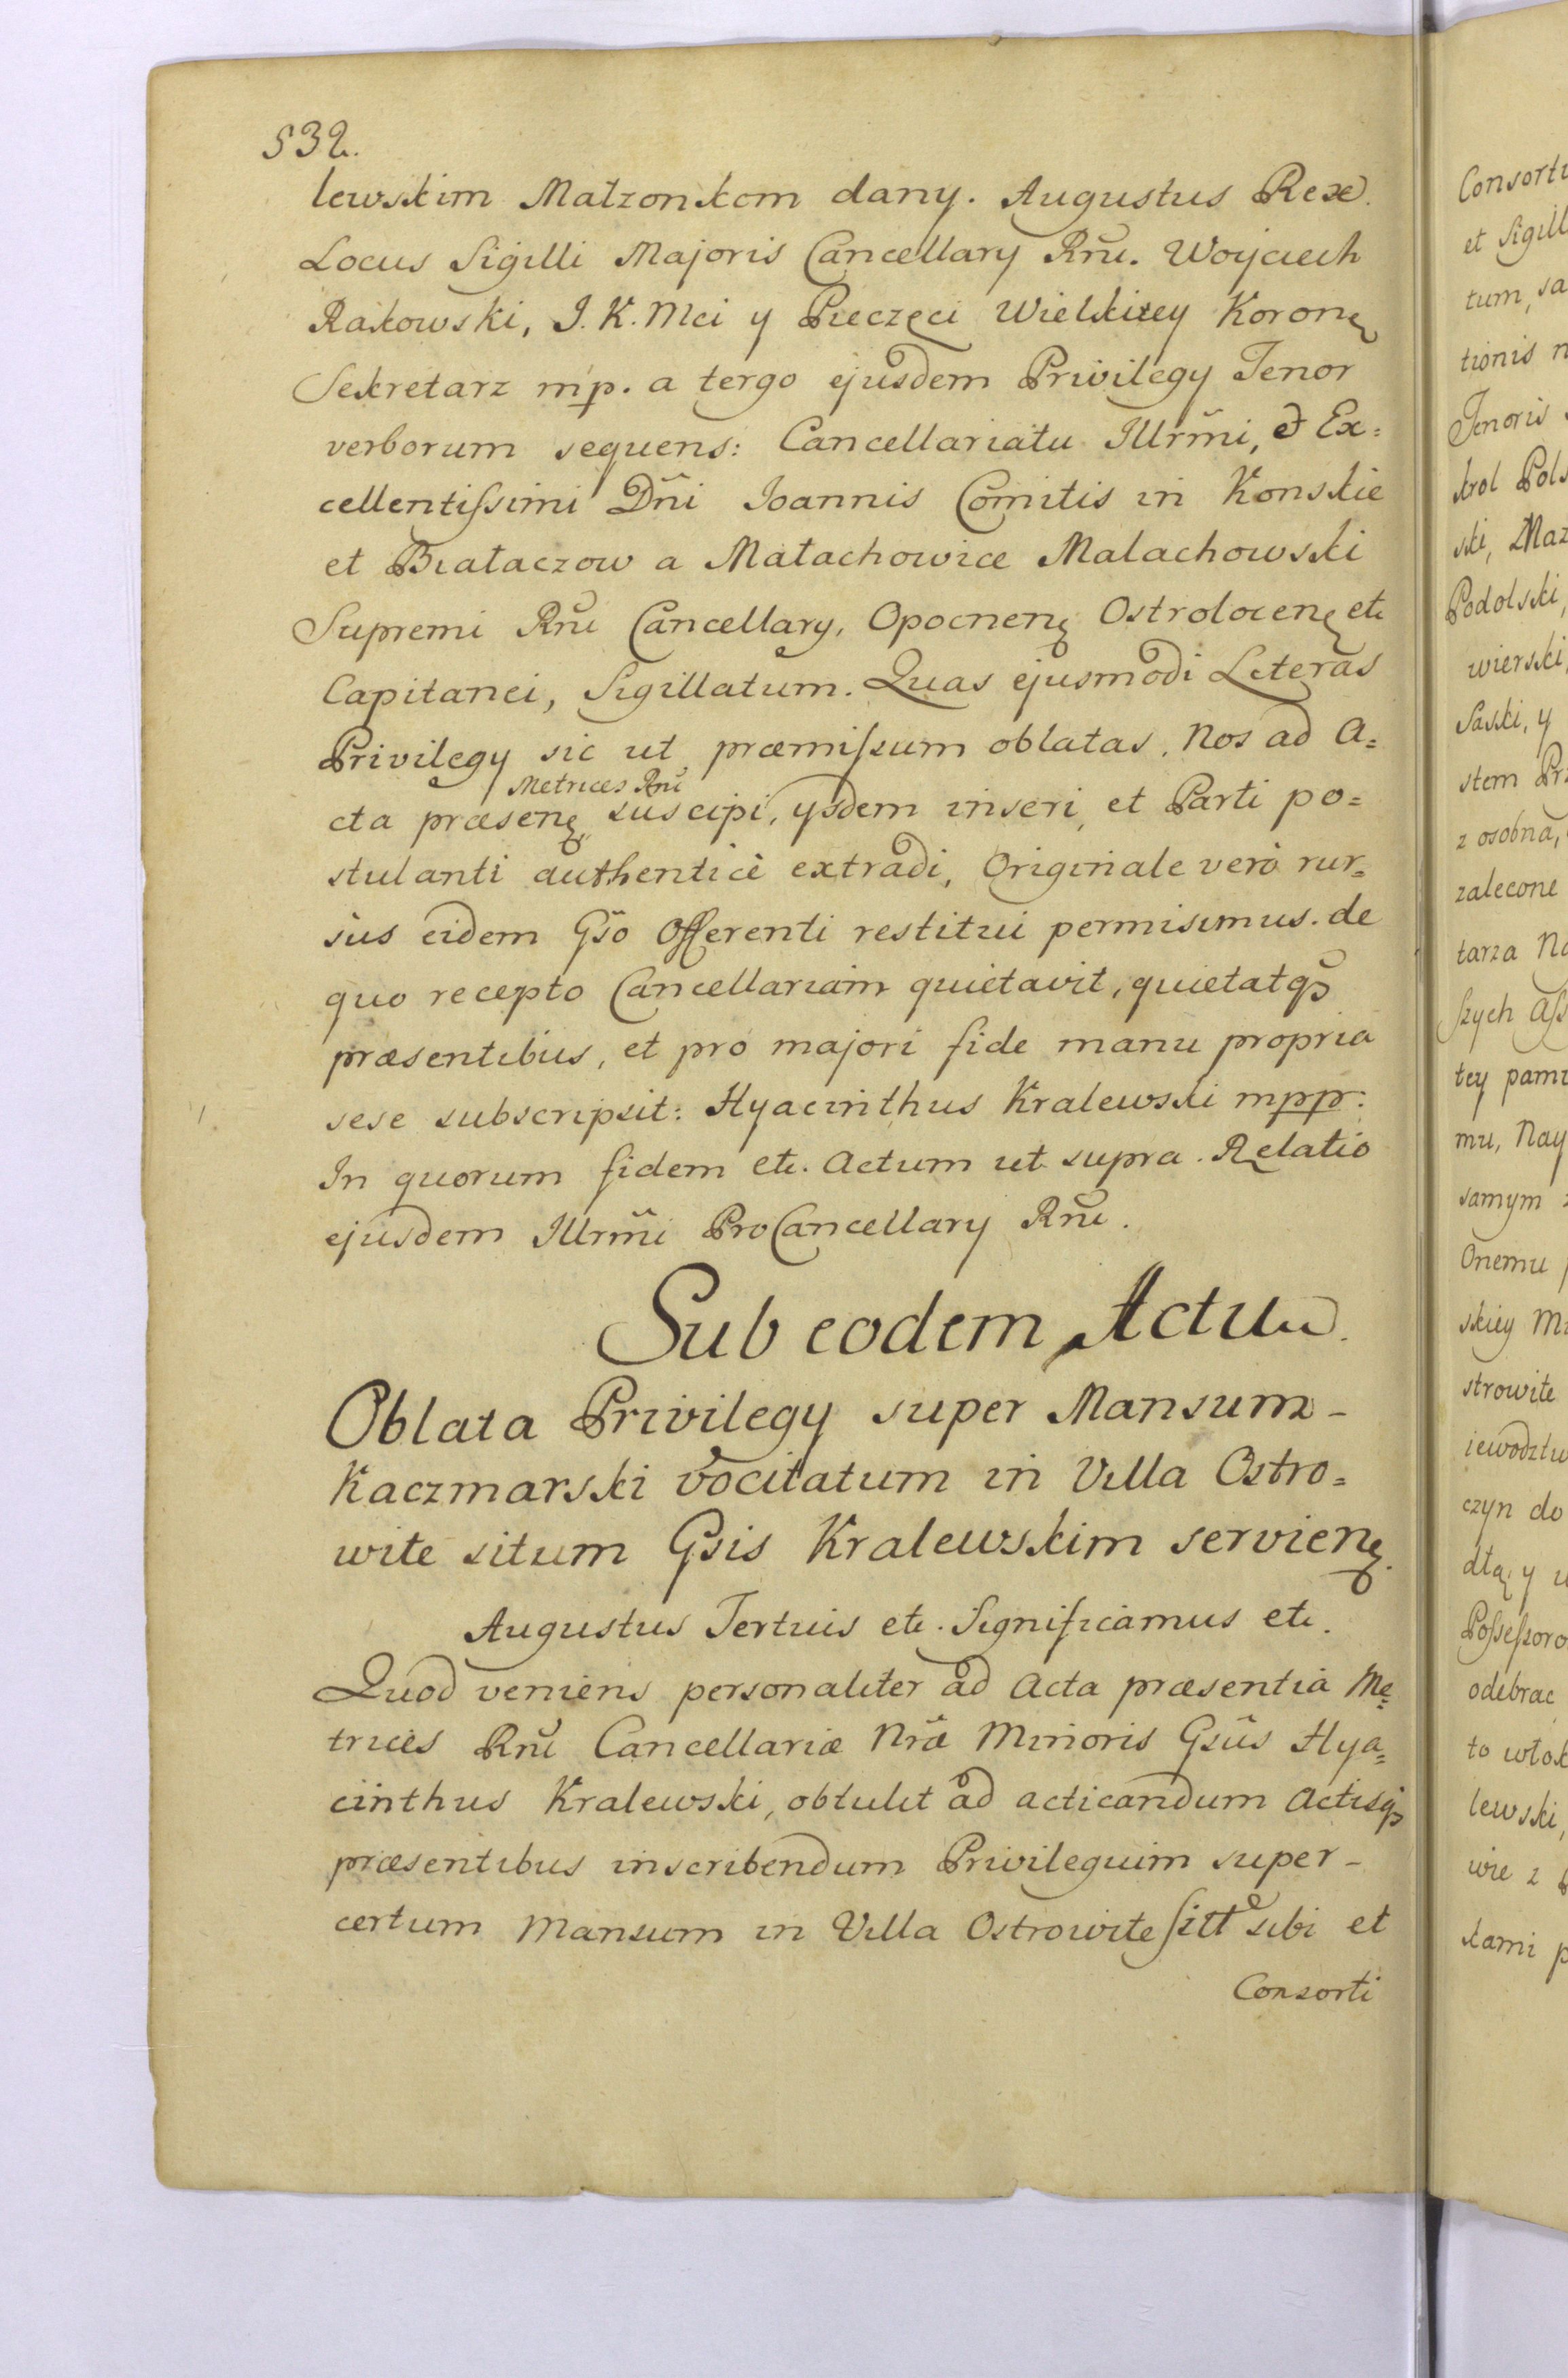 532.
lewskim Małzonkom dany. Augustus Rex.
Locus Sigilli Majoris Cancellary Rnĩ. Woyciech
Rakowski, J. K. Mci y Pieczęci Wielkiey Koronę
Sekretarz mp. a tergo ejusdem Privilegy Tenor
verborum sequens: Cancellariatu Illrm̃i, & Ex=
cellentiſsimi Dñi Joannis Comitis in Konskie
et Białaczow a Małachowice Małachowski
Supremi Rnĩ Cancellary, Opocnenę Ostrolocenę etc
Capitanei, Sigillatum. Quas ejusmodi Literas
Privilegy sic ut præmiſsum oblatas, Nos ad A=
Metrices Rnĩ
cta præsenę suscipi, ysdem inseri, et Parti po=
stulanti authenticè extradi, Originale verò rur=
sus eidem Gs̃o Offerenti restitui permisimus. de
quo recepto Cancellariam quietavit, quietatqȝ
præsentibus, et pro majori fide manu propria
sese subscripsit: Hyacinthus Kralewski mpp.
In quorum fidem etc. Actum ut supra. Relatio
ejusdem Illrm̃i ProCancellary Rnĩ.
Sub eodem Actu.
Oblata Privilegy super Mansum -
Kaczmarski vocitatum in Villa Ostro=
wite situm Gsis Kralewskim servienę.
Augustus Tertius etc. Significamus etc.
Quod veniens personaliter ad Acta præsentia Me=
trices Rnĩ Cancellariæ Nr̃æ Minoris Gsũs Hya=
cinthus Kralewski, obtulit ad acticandum Actisqȝ
præsentibus inscribendum Privilegium super -
certum Mansum in Villa Ostrowite sibi et
Consorti
Consorti
et Sigill
tum, sa
tionis n
Tenoris
krol Pols
ski, Maz
Podolski,
wierski,
Saski, y
stem Prz
z osobna,
zalecone
tarza Na
ſzych Aſs
tey pami
mu, Nay
samym z
Onemu p
skiey Mi
strowite
iewodztw
czyn do
dłą, y u
Poſseſsoro
odebrac
to włok
lewski,
wie z
kami p